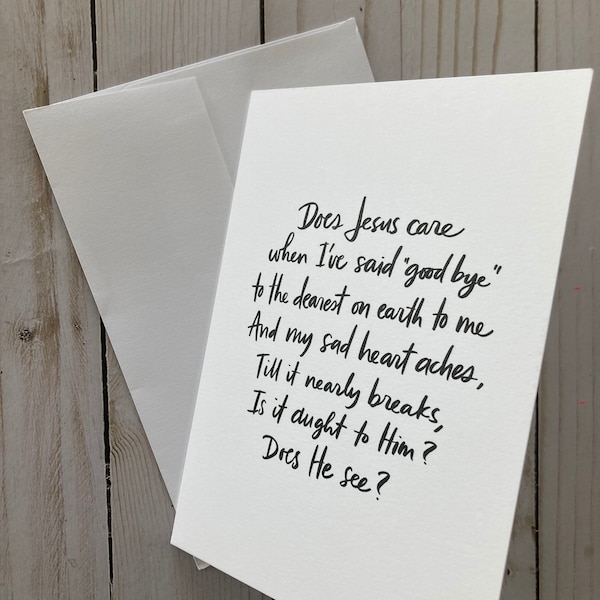 Does Jesus care
when I've said "good bye"
to the dearest on earth to me
And my sad heart aches,
Till it nearly breaks,
Is it aught to Him?
Does He see?